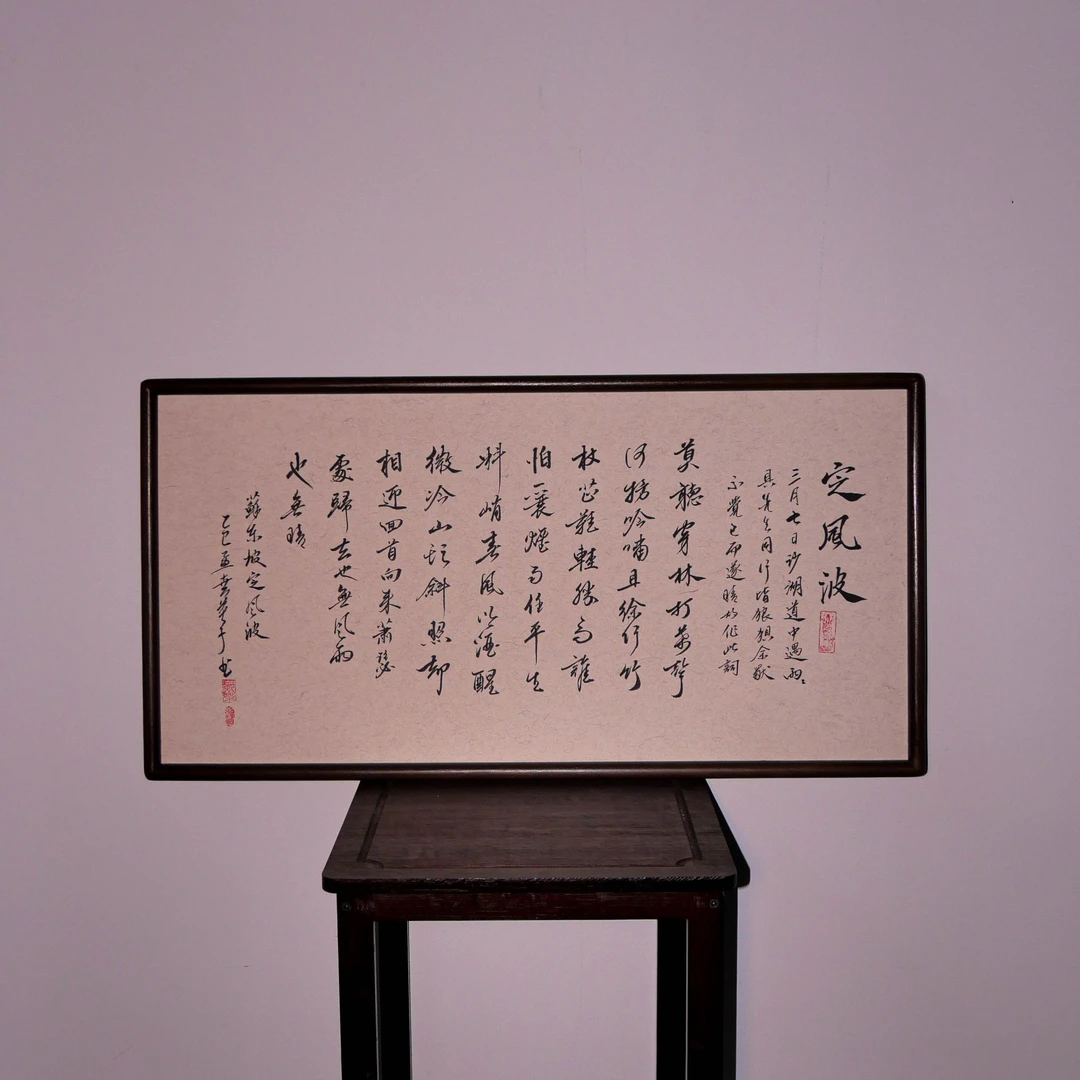 定風波
三月七日沙湖道中遇雨〻
具先去同行皆狼狽余獨
不覺已而遂晴故作此詞
莫聽穿林打葉聲
何妨吟嘯且徐行竹
杖芒鞋輕勝馬誰
怕一蓑煙雨任平生
料峭春風吹酒醒
微冷山頭斜照卻
相迎回首向來蕭瑟
處歸去也無風雨
也無晴
蘇東坡定風波
乙巳孟